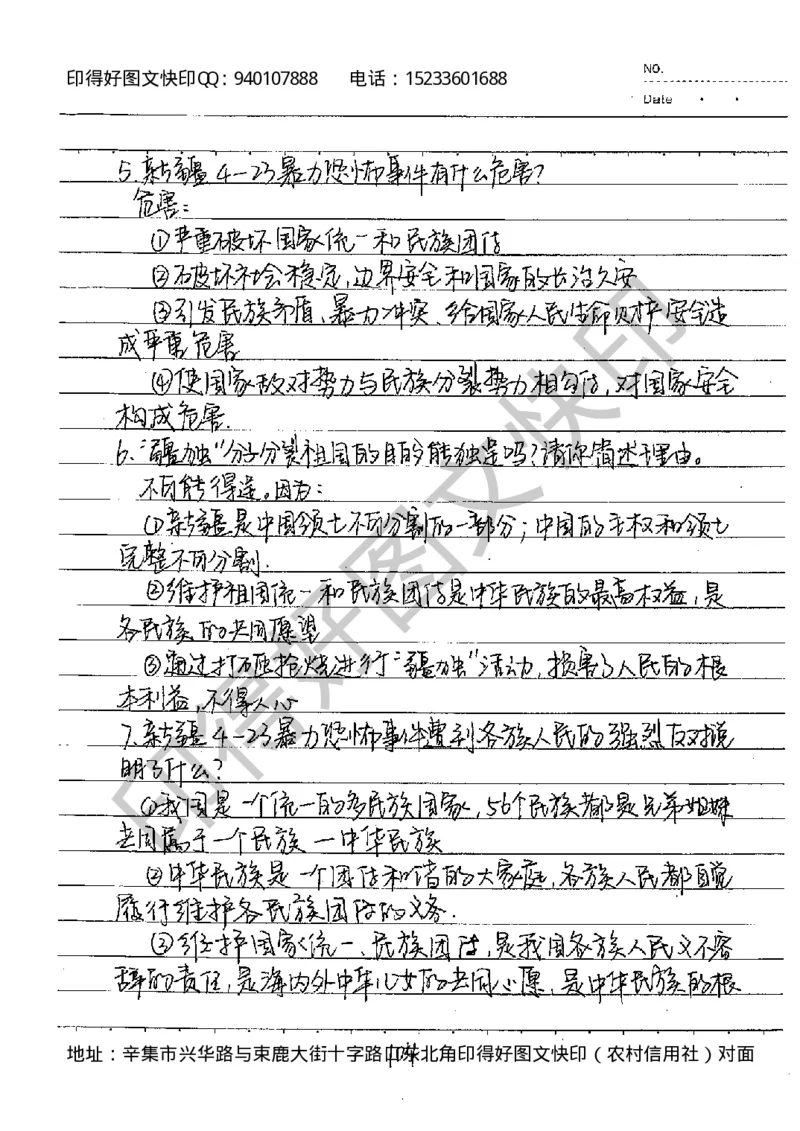 印得好图文快印QQ：940107888 电话：15233601688
NO.
Date
5.新疆4-23暴力恐怖事件有什么危害?
危害：
①严重破坏国家统一和民族团结
②破坏社会稳定,边界安全和国家的长治久安
③引发民族矛盾、暴力冲突、给国家人民生命财产安全造
成严重危害
④使国家敌对势力与民族分裂势力相勾结,对国家安全
构成危害.
6、“疆独”分子分裂祖国的目的能独逞吗?请你简述理由。
不可能得逞。因为：
①新疆是中国领土不可分割的一部分；中国的主权和领土
完整不可分割.
②维护祖国统一和民族团结是中华民族的最高权益,是
各民族的共同愿望
③通过打砸抢烧进行“疆独”活动,损害了人民的根
本利益,不得人心
7.新疆4-23暴力恐怖事件遭到各族人民的强烈反对说
明了什么?
①我国是一个统一的多民族国家,56个民族都是兄弟姐妹
共同属于一个民族—中华民族
②中华民族是一个团结和谐的大家庭,各族人民都自觉
履行维护各民族团结的义务.
③维护国家统一、民族团结,是我国各族人民义不容
辞的责任,是海内外中华儿女的共同心愿,是中华民族的根
地址：辛集市兴华路与束鹿大街十字路口东北角印得好图文快印（农村信用社）对面
印得好图文快印